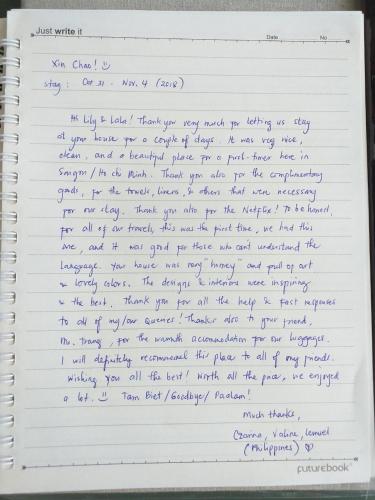 Just write it
Date
No
Xin Chao! :)
Stay: Oct 31 - Nov. 4 (2018)
Hi Lily & Lala! Thank you very much for letting us stay
at your house for a couple of days. It was very nice,
clean, and a beautiful place for a first-timer here in
Saigon / Ho Chi Minh. Thank you also for the complimentary
goods, for the towels, linens, & others that were necessary
for our stay. Thank you also for the Netflix! To be honest,
for all of our travels, this was the first time, we had this
one, and it was good for those who can't understand the
language. Your house was very "homey" and full of art
& lovely colors. The designs & interiors were inspiring
& the best. Thank you for all the help & fast responses
to all of my/our queries! Thanks also to your friend,
Ms. Trang, for the warmth accommodation for our luggages.
I will definitely recommend this place to all of my friends.
Wishing you all the best! Worth all the price, we enjoyed
a lot. :) Tam Biet / Goodbye / Paalam!
Much thanks,
Czarina, Valine, Lemuel
(Philippines) ♡
futurebook